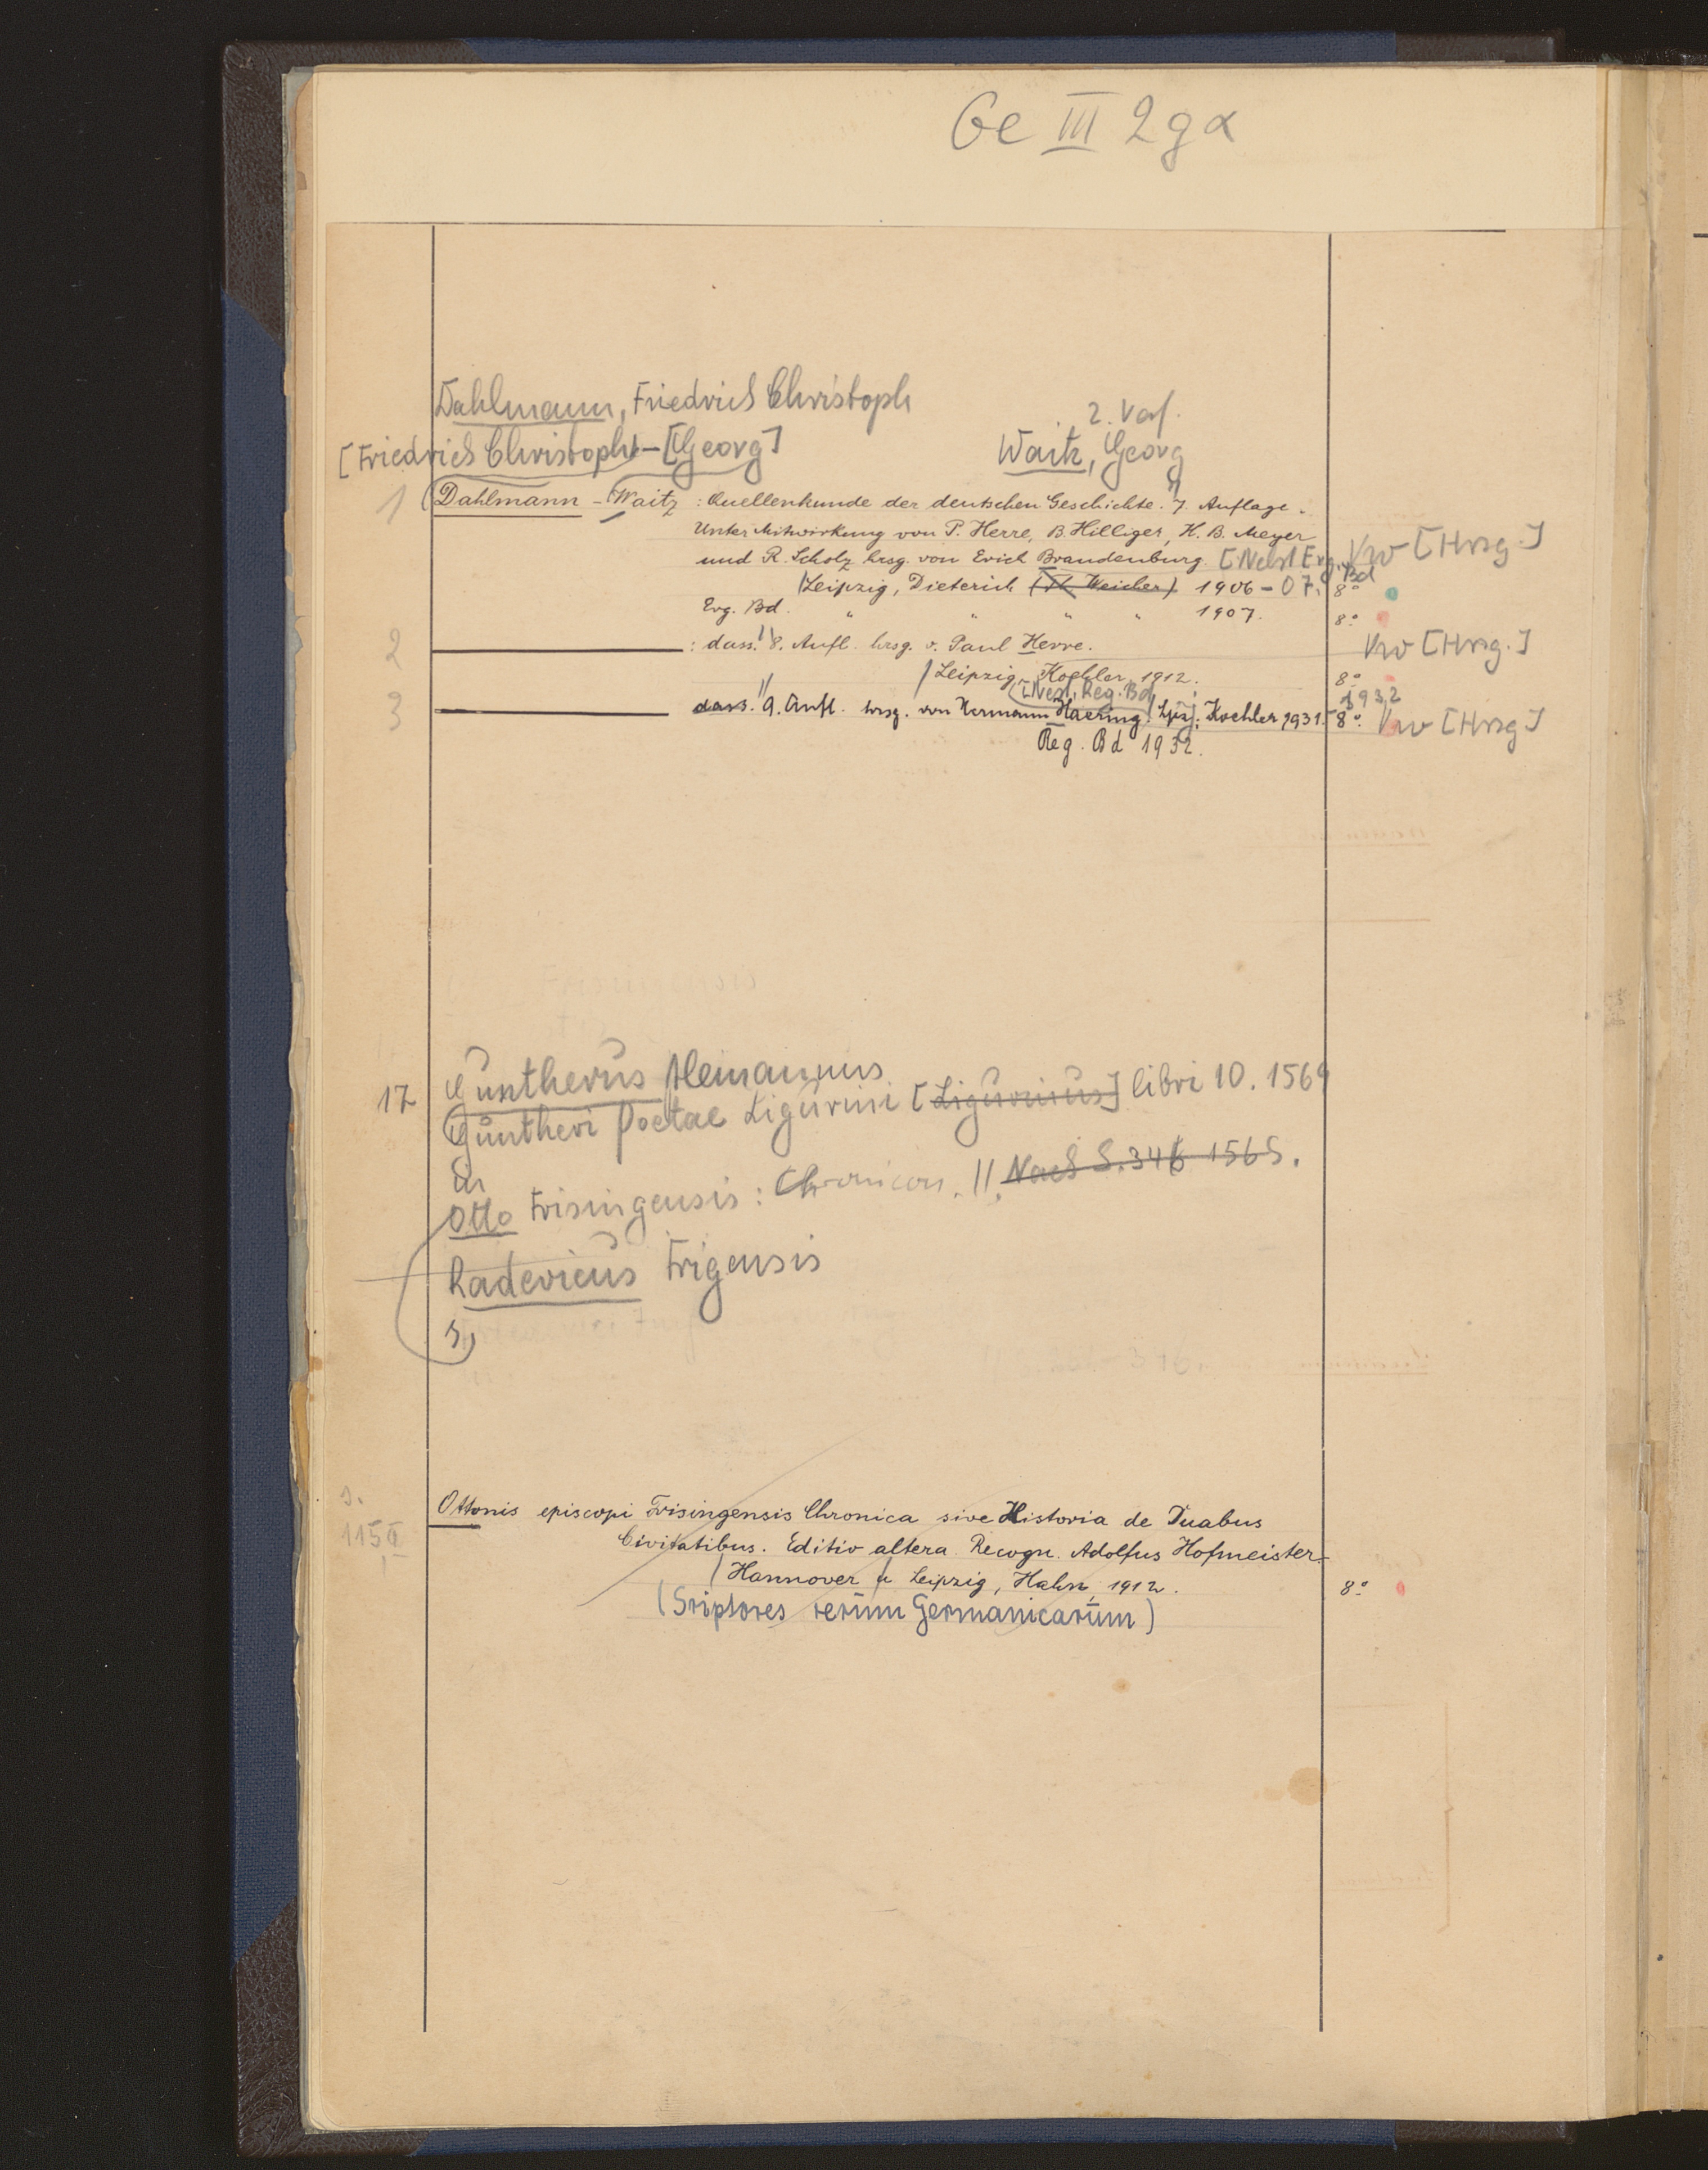 Ge III 2gα
Dahlmann, Friedrich Christoph
2. Verf.
[Friedrich Christoph] - [Georg]
Waitz, Georg
1 Dahlmann - Waitz : Quellenkunde der deutschen Geschichte. 7. Auflage.
Unter Mitwirkung von P. Herre, B. Hilliger, H. B. Meyer
und R. Scholz hrsg. von Erich Brandenburg. [Nebst Erg. Bd Vw [Hrsg.]
Leipzig, Dieterich (Th. Weicher) 1906-07. 8°
Erg. Bd. " " " " 1907. 8°
2 : dass. 8. Aufl. hrsg. v. Paul Herre. Vw [Hrsg.]
Leipzig, Koehler, 1912. 8°
[Nebst Reg. Bd] 1932
3 dass. 9. Aufl. hrsg. von Hermann Haering. Lpzg: Koehler 1931. 8° Vw [Hrsg]
Reg. Bd 1932.
17 Guntherus Alemannus
Guntheri Poetae Ligurini [Ligurinus] libri 10. 1569
In
Otto Frisingensis: Chronicon. Nach S. 346 1569.
Radevicus Frigensis
s.
115 II
Ottonis episcopi Frisingensis Chronica sive Historia de Duabus
Civitatibus. Editio altera. Recogn. Adolfus Hofmeister.
Hannover u Leipzig, Hahn, 1912. 8°
(Sriptores rerum Germanicarum)